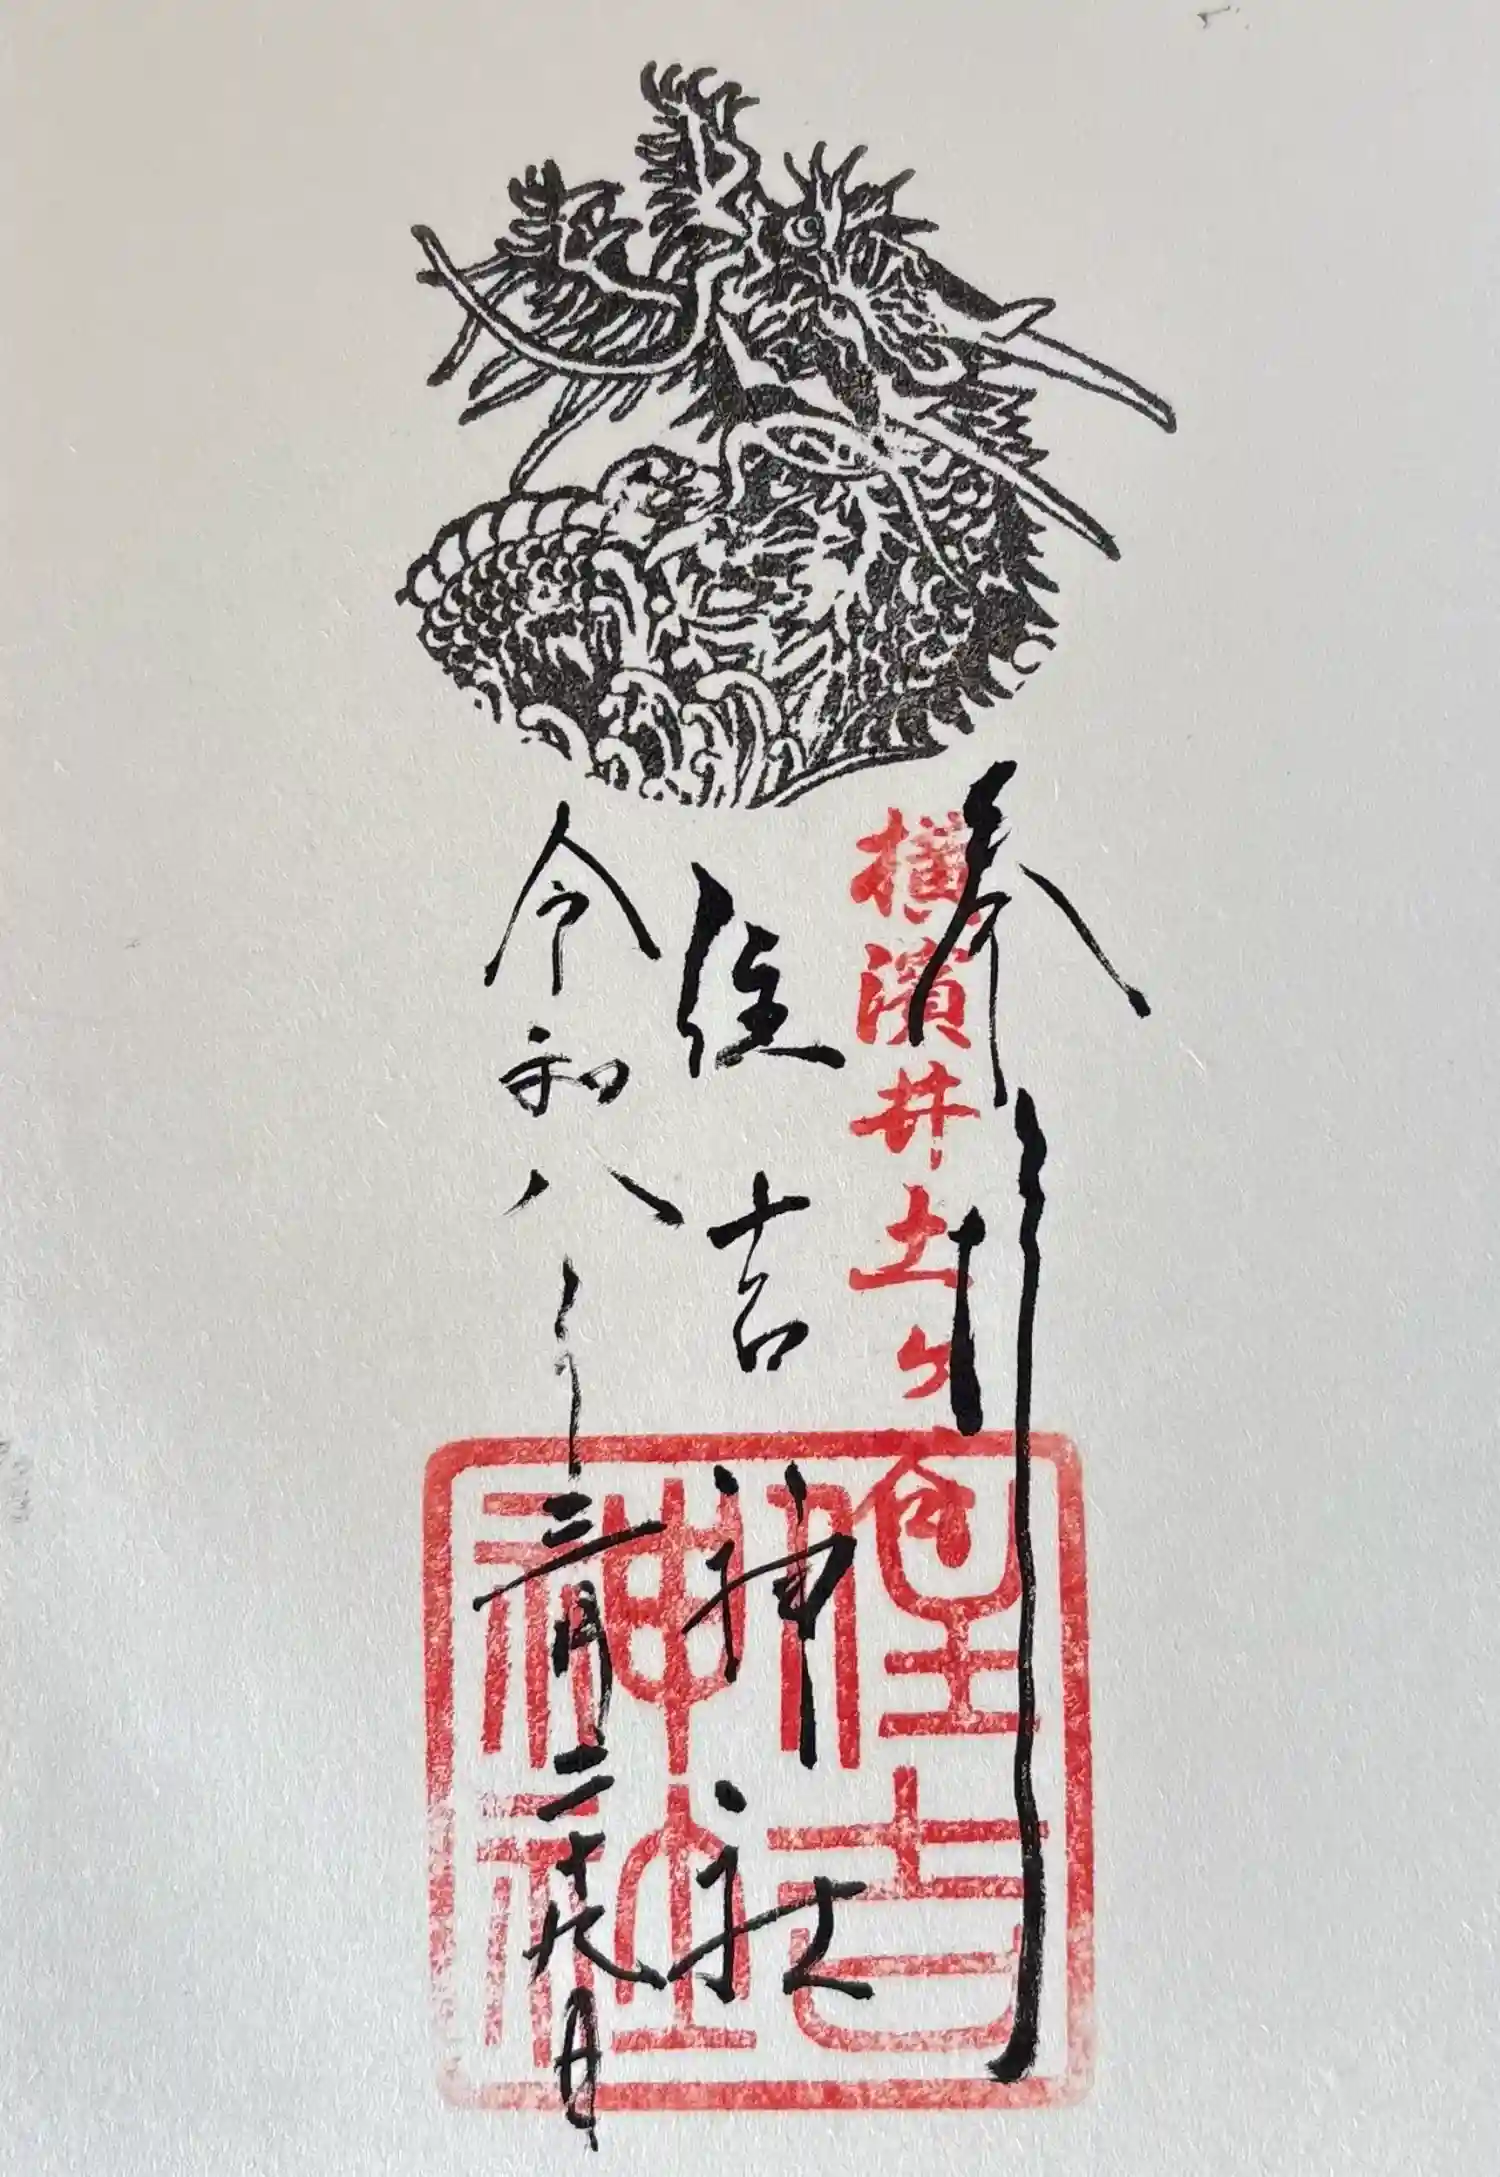 奉拝
横濱井土ヶ谷
住吉神社
令和八年三月二十九日
住吉
神社